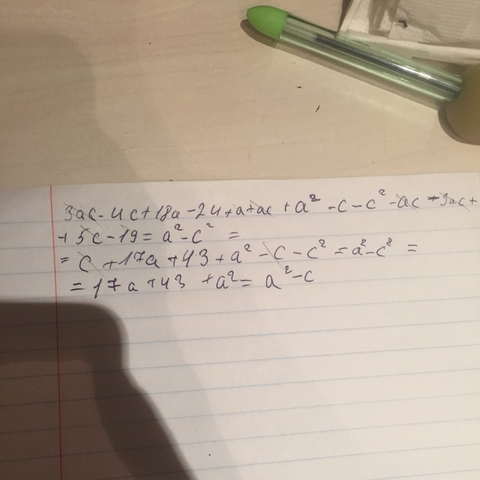 3ac - 4c + 18a - 24 + a + ac + a² - c - c² - ac - 3ac +
+ 5c - 19 = a² - c² =
= c + 17a + 43 + a² - c - c² = a² - c² =
= 17a + 43 + a² = a² - c